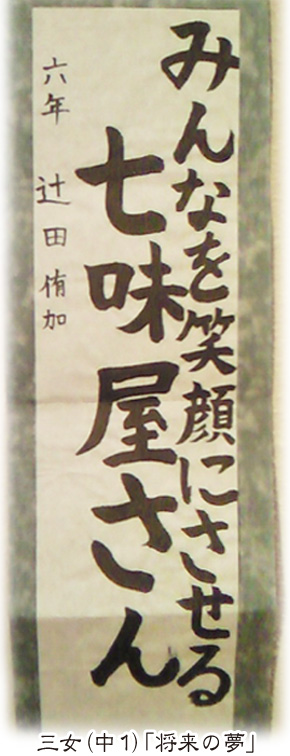 みんなを笑顔にさせる
七味屋さん
六年 辻田侑加
三女(中1)「将来の夢」